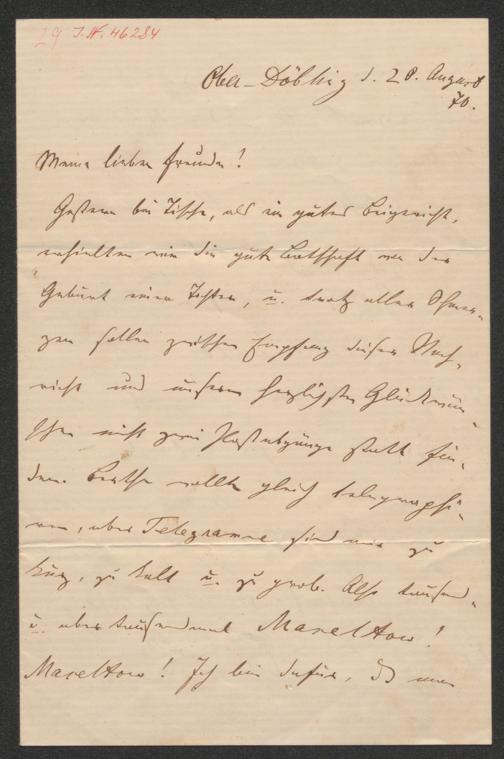 29 J.N. 46284
Ober-Döbling d. 28. August
70.
Meine lieben Freunde!
Gestern bei Tische, als ein gutes Beigericht,
erhielten wir die gute Botschaft von der
Geburt einer Tochter, u. trotz allen Schmer-
zen sollen zwischen Empfang dieser Nach-
richt und unseren herzlichsten Glückwün-
schen nicht zwei Postabgänge statt fin-
den. Berthe wollte gleich telegraphi-
ren, aber Telegramme sind mir zu
kurz, zu kalt u. zu grob. Also tausend-
u. abertausendmal Maseltow!
Maseltow! Ich bin dafür, daß man